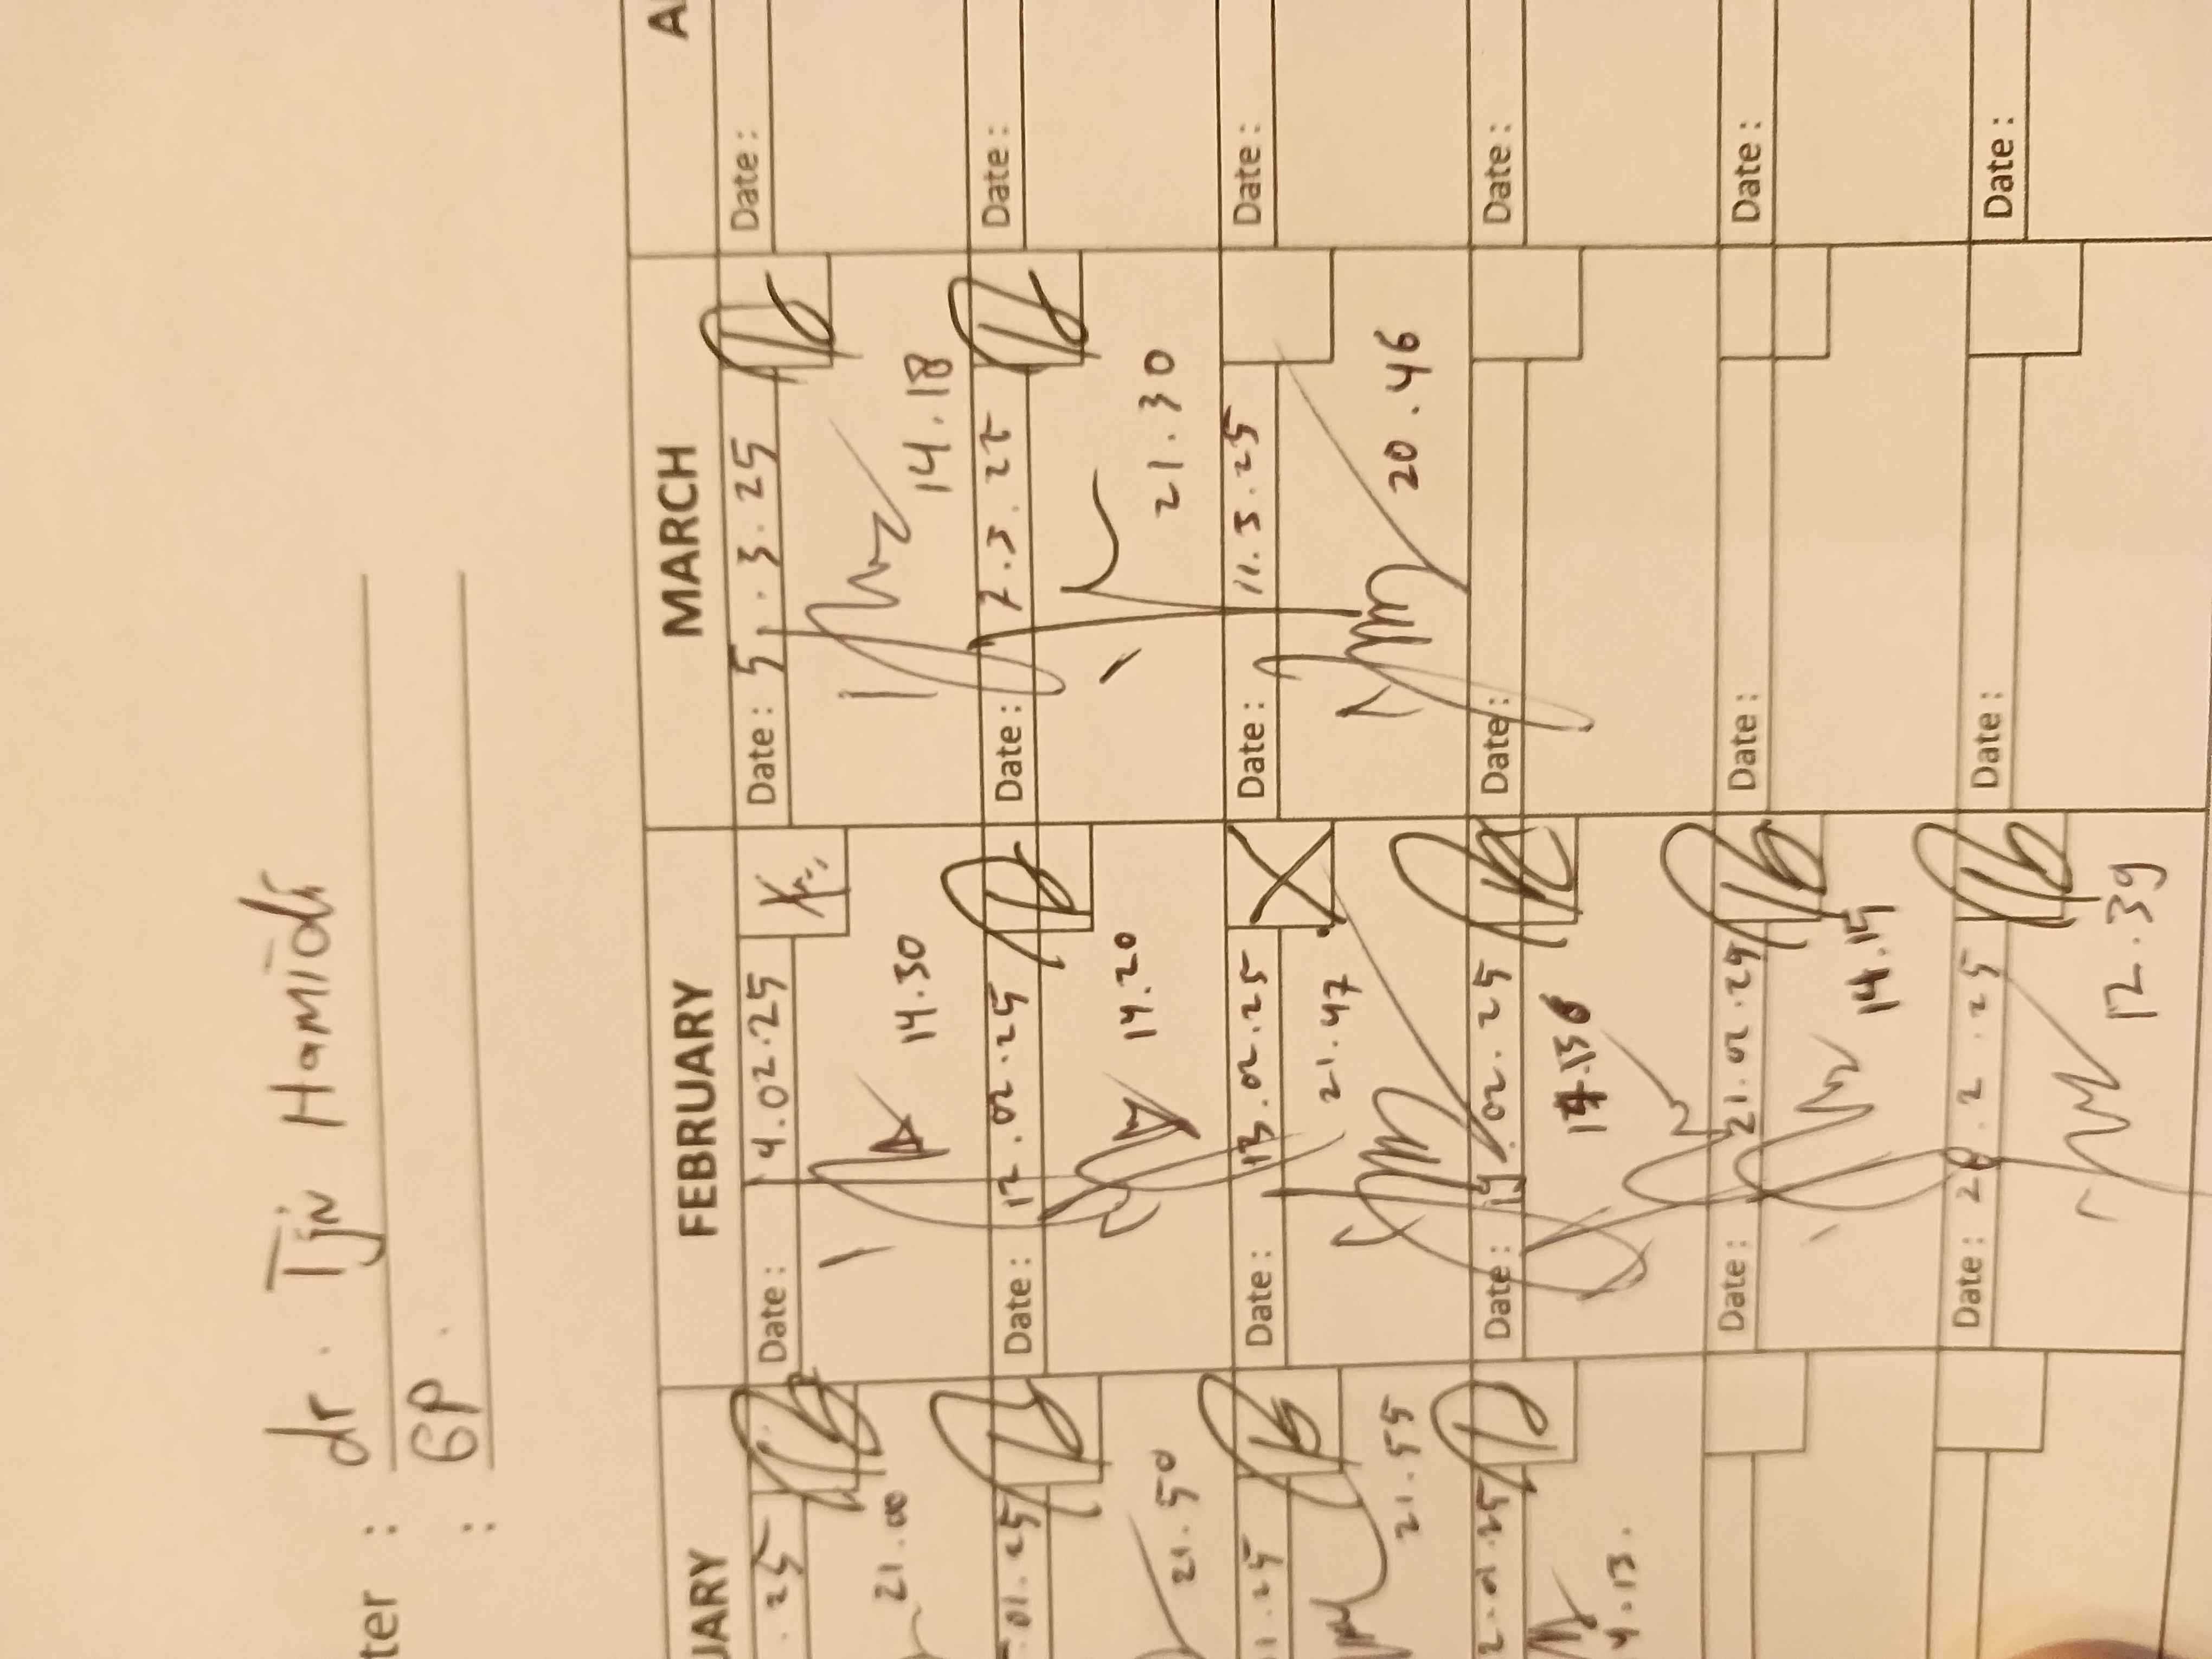 ter : dr. Tjn Hamidi
: GP.
UARY FEBRUARY MARCH A
.25 Date : 4.02.25 Date : 5.3.25 Date :
21.00 14.30 14.18
.01.25 Date : 12.02.25 Date : 7.3.25 Date :
21.50 14.20 21.30
1.25 Date : 13.02.25 Date : 11.3.25 Date :
21.55 21.47 20.46
2.01.25 Date : .02.25 Date : Date :
4.13.
Date : 21.02.25 Date : Date :
14.15
Date : 28.2.25 Date : Date :
12.39